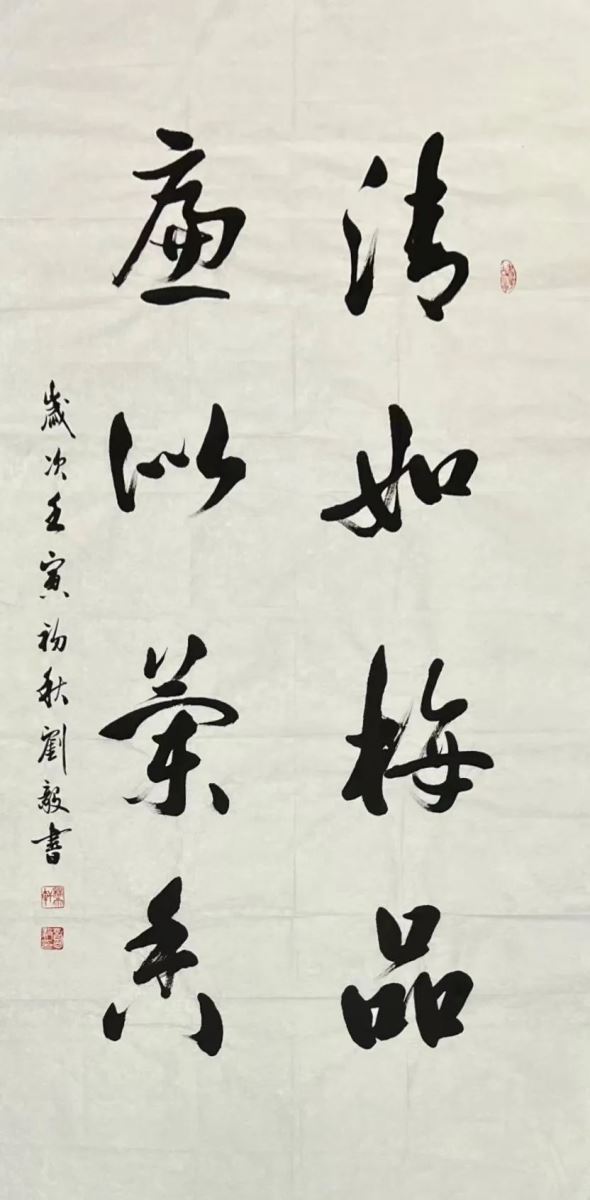 清如梅品
廉似兰香
歲次壬寅初秋劉毅書